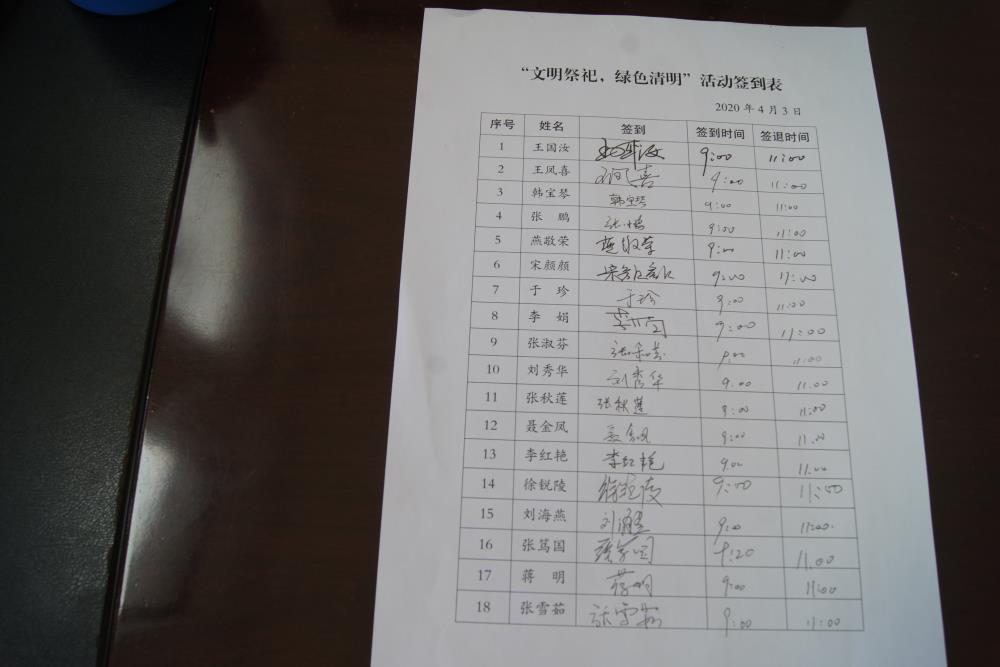 “文明祭祀，绿色清明”活动签到表
2020 年 4 月 3 日
序号 姓名 签到 签到时间 签退时间
1 王国汝 王国汝 9:00 11:00
2 王凤喜 王凤喜 9:00 11:00
3 韩宝琴 韩宝琴 9:00 11:00
4 张 鹏 张鹏 9:00 11:00
5 燕敬荣 燕敬荣 9:00 11:00
6 宋颜颜 宋颜颜 9:00 11:00
7 于 珍 于珍 9:00 11:00
8 李 娟 李娟 9:00 11:00
9 张淑芬 张淑芬 9:00 11:00
10 刘秀华 刘秀华 9.00 11.00
11 张秋莲 张秋莲 9:00 11:00
12 聂金凤 聂金凤 9:00 11.00
13 李红艳 李红艳 9.00 11.00
14 徐锐陵 徐锐陵 9:00 11:00
15 刘海燕 刘海燕 9:00 11:00.
16 张笃国 张笃国 9:20 11.00
17 蒋 明 蒋明 9:00 11:00
18 张雪茹 张雪茹 9:00 11:00